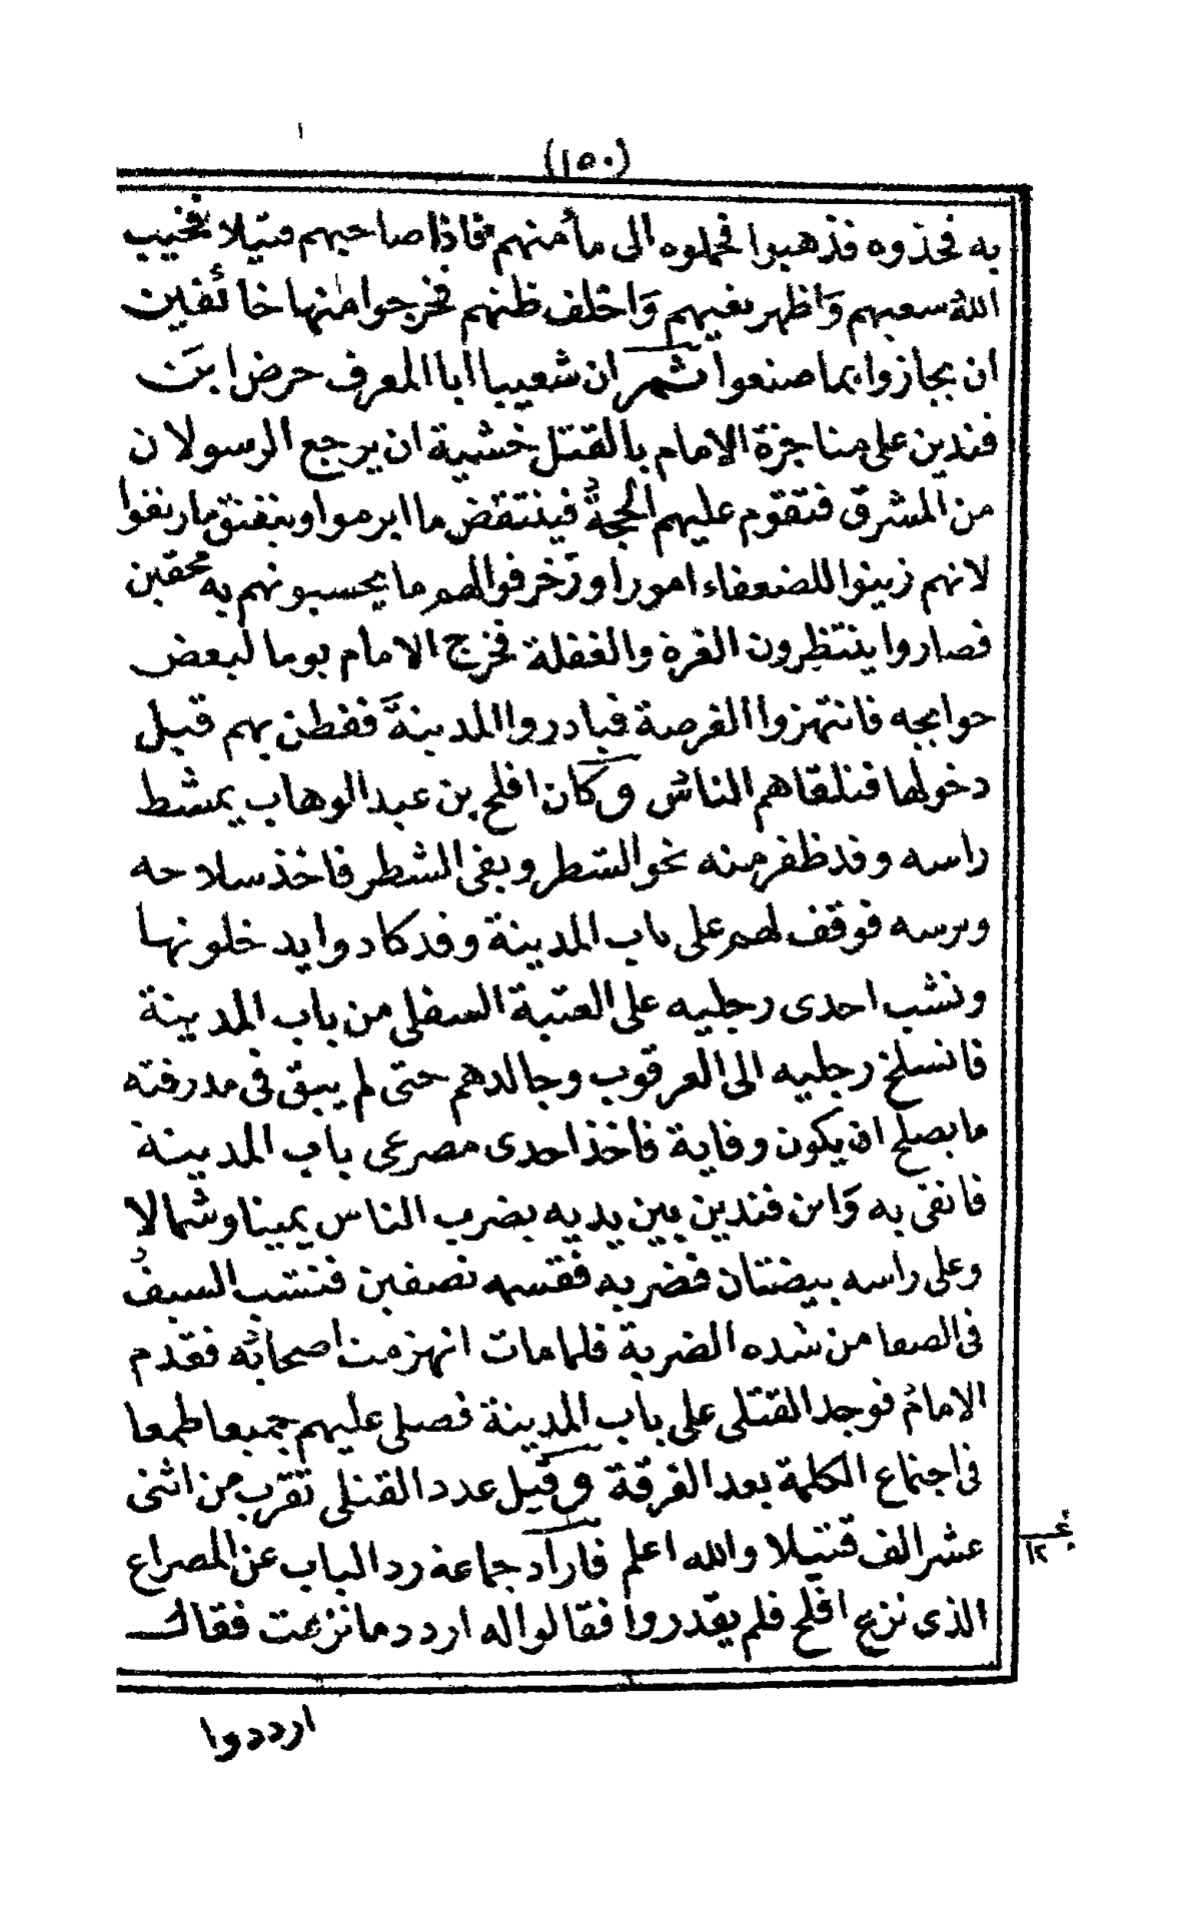 (١٥٠)
به فخذوه فذهبوا فحملوه الى مأمنهم فاذا صاحبهم قتيلا فخيب
الله سعيهم وَاظهر بغيهم وَاخلف ظنهم فخرجوا منها خائفين
ان يجازوا بما صنعوا ثمر ان شعيبا ابا المعرف حرض ابن
فندين على مناجزة الامام بالقتل خشية ان يرجع الرسولان
من المشرق فتقوم عليهم الحجةُ فينتقض ما ابرموا وينفتق ما رتفوا
لانهم زينوا للضعفاء امورا وزخرفوا لهم ما يحسبونهم به محقين
فصاروا ينتظرون الغرة والغفلة فخرج الامام يوما لبعض
حوايجه فانتهزوا الفرصة فبادروا المدينةَ ففطن بهم قبل
دخولها فتلقاهم الناسُ وكان افلح بن عبد الوهاب يمشط
راسه وقد ظفر منه نحو الشطر وبقى الشطر فاخذ سلاحه
وترسه فوقف لهم على باب المدينة وقد كادوا يدخلونها
ونشب احدى رجليه على العتبة السفلى من باب المدينة
فانسلخ رجليه الى العرقوب وجالدهم حتى لم يبق فى مدرقته
ما يصلح ان يكون وقاية فاخذ احدى مصرعى باب المدينة
فاتقى به وَابن فندين بين يديه يضرب الناس يمينا وشمالا
وعلى راسه بيضتان فضربه فقسمه نصفين فنشب السيفُ
فى الصفا من شده الضربة فلما مات انهزمت اصحابُه فقدم
الامامُ فوجد القتلى على باب المدينة فصلى عليهم جميعا طمعا
فى اجتماع الكلمة بعد الفرقة وقيل عدد القتلى تقرب من اثنى
عشر الف قتيلا والله اعلم فاراد جماعة رد الباب عن المصراع
الذى نزع افلح فلم يقدروا فقالوا له اردد ما نزعت فقال
ارددوا